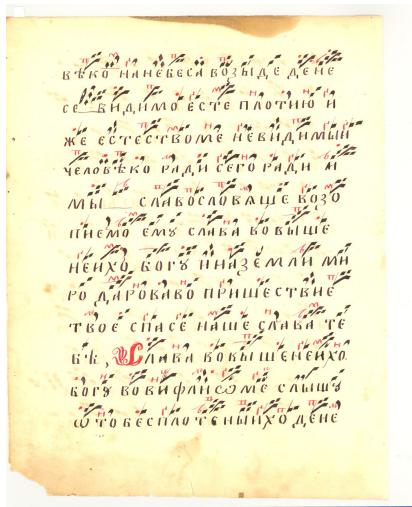 вѣко на небеса возыде дене
се видимо есте плотию и
же естествоме невидимыи
человѣко ради сего ради и
мы славословяще возо
пиемо емȣ слава во выше
неихо богȣ и на земли ми
ро дарова во пришествие
твое спасе наше слава те
бѣ, Слава во вышенеихо
богȣ во вифлиѡме слышȣ
ѿ то бесплотеныихо дене